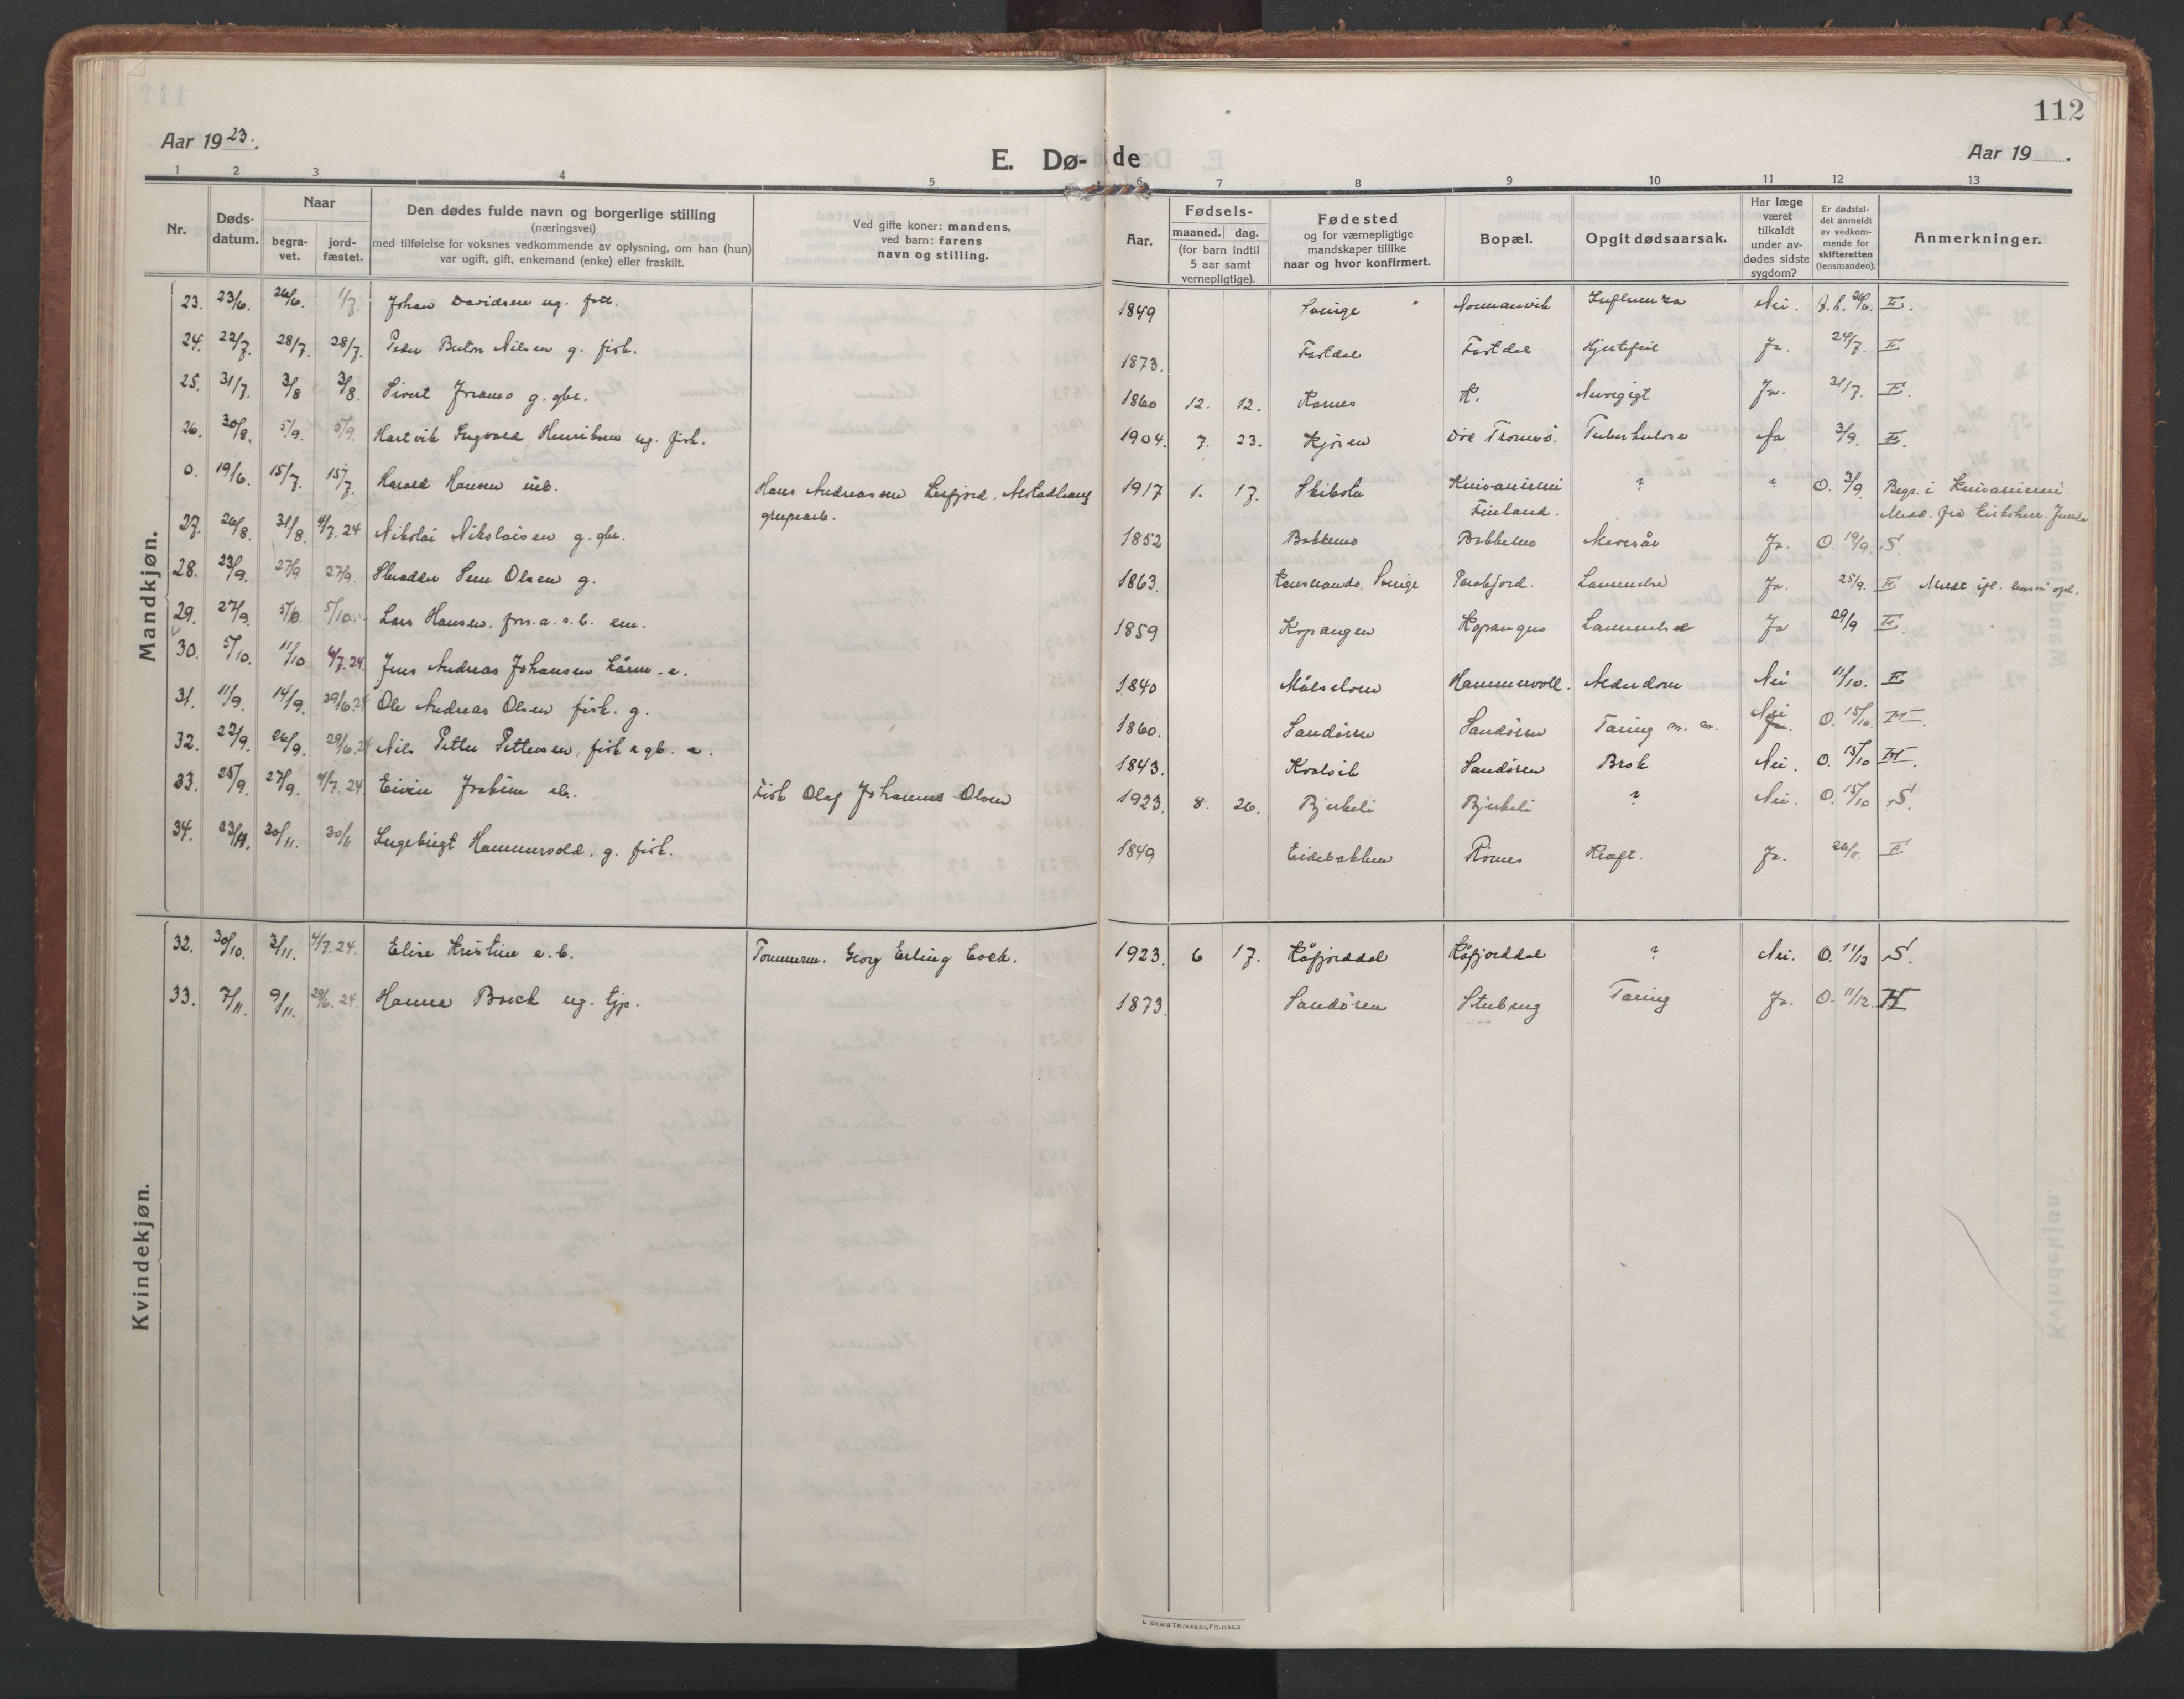 112
Aar 1923.
E. Dø- de
Aar 19 .
1 2 3 4 5 6 7 8 9 10 11 12 13
Nr.
Døds-
datum.
Naar
begra-
vet.
jord-
fæstet.
Den dødes fulde navn og borgerlige stilling
(næringsvei)
med tilføielse for voksnes vedkommende av oplysning, om han (hun)
var ugift, gift, enkemand (enke) eller fraskilt.
Ved gifte koner: mandens,
ved barn: farens
navn og stilling.
Aar.
Fødsels-
maaned. dag.
(for barn indtil
5 aar samt
vernepligtige).
Fødested
og for værnepligtige
mandskaper tillike
naar og hvor konfirmert.
Bopæl.
Opgit dødsaarsak.
Har læge
været
tilkaldt
under av-
dødes sidste
sygdom?
Er dødsfal-
det anmeldt
av vedkom-
mende for
skifteretten
(lensmanden).
Anmerkninger.
Mandkjøn.
23. 23/6. 26/6. 1/7. Johan Davidsen ug. 1849 Sverige Normanvik Influenza Nei. 26/6. E.
24. 22/7. 28/7. 28/7. Peder Berton Nilsen g. fisk. 1873. Fastdal Fastdal Hjertefeil Ja. 24/7. E
25. 31/7. 3/8 3/8. Sivert Joramo g. gbr. 1860 12. 12. Karnes K. Nervegigt Ja. 31/7. E.
26. 30/8. 5/9. 5/9. Hartvik Ingvald Henriksen ug. fisk. 1904. 7. 23. Kjosen Tromsö. Tuberkulose Ja 3/9. E.
0. 19/6. 15/7. 15/7. Harald Hansen Hans Andreassen 1917 1. 17. Skibotn Knivaniemi ? " O. 3/9. Begr. i Knivaniemi
Finland.
27. 26/8. 31/8. 4/7. 24 Nikolai Nikolaisen g. gbr. 1852 Bakkemo Bakkemo Mavesår Ja. O. 19/9. S.
28. 23/9. 27/9 27/9. Olsen g. 1863. Sverige Lammelse Ja. 25/9. E
29. 27/9. 5/10. 5/10. Lars Hansen. em. 1859 Kopangen Kopangen Lammelse Ja 29/9 E.
30. 5/10. 11/10 4/7. 24. Jens Andreas Johansen 1840 Målselven Hammervoll. Alderdom Nei 11/10. E
31. 11/9. 14/9. 29/6. 24 Ole Andreas Olsen fisk. g. 1860. Sandören Sandören Tæring m. m. Nei O. 15/10. H.
32. 22/9. 26/9. 29/6. 24 Nils Petter Pettersen, fisk & gb. e. 1843. Kvalvik Sandören Brok Nei. O. 15/10 H.
33. 25/9. 27/9. 4/7. 24. Eivin Joakim Fisk Olaf Johannes Olsen 1923. 8. 26. Bjerkeli Bjerkeli ? Nei. O. 15/10 S.
34. 23/11. 30/11. 30/11 Ingebrigt Hammervold. g. fisk. 1849 Eidebakken Rörnes Kræft. Ja. 26/11. E
Kvindekjøn.
32. 30/10. 3/11. 4/7. 24. Elise Kristine e. b. Tommerm. Georg Erling 1923. 6 17. Kåfjorddal Kåfjorddal ? Nei. O. 11/12 S.
33. 7/11. 9/11. 29/6. 24. Hanna Bock ug. tjp. 1873. Sandören Stubeng Tæring Ja. O. 11/12. H